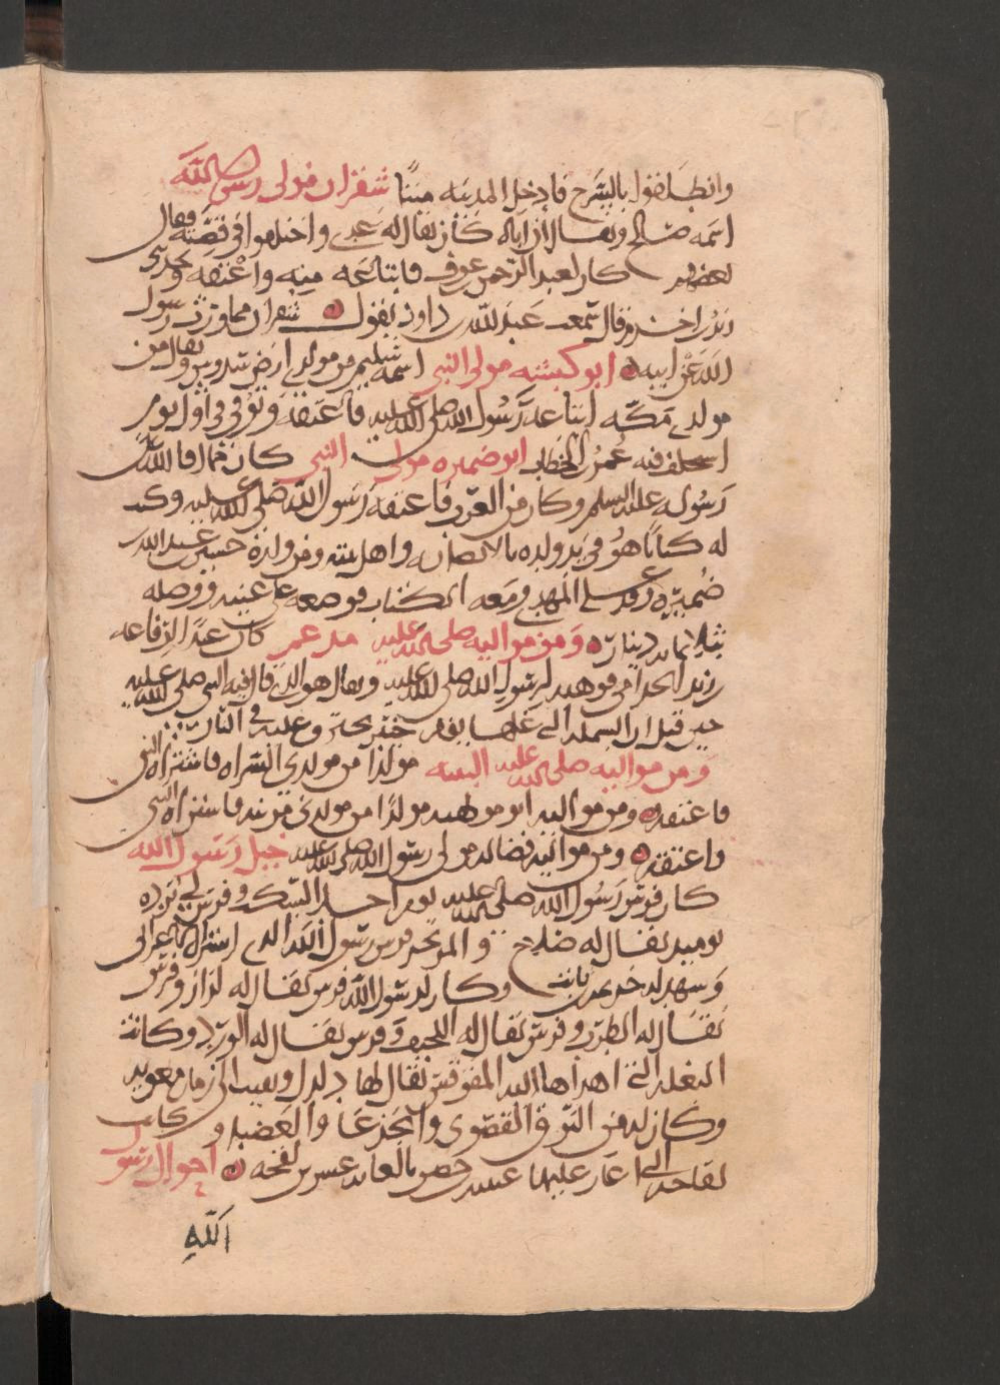 وانطلقوا بالسرح فادخل المدينه ميتا شقران مولى رسول الله
اسمه صالح ويقال ان اباه كان يقال له عدي واختلفوا في قصته فقال
بعضهم كان لعبد الرحمن بن عوف فابتاعه منه واعتقه وحدثني
زيد بن اخزم قال سمعت عبد الله بن داود يقول شقران مما ورث رسول
الله عن ابيه ابو كبشه مولى النبي اسمه سليم من مولدي ارض دوس ويقال من
مولدي مكه ابتاعه رسول الله صلى الله عليه فاعتقه وتوفي في اول يوم
استخلف فيه عمر بن الخطاب ابو ضميره مولى النبي كان مما افا الله على
رسوله عليه السلم وكان من العرب فاعتقه رسول الله صلى الله عليه وكتب
له كتابا هو في يد ولده بالايصا به واهل بيته ومن ولده حسين بن عبد الله بن
ضميره وفد على المهدي ومعه الكتاب فوضعه على عينيه ووصله
بثلثمايه دينار ومن مواليه صلى الله عليه مدعم كان عبدا لرفاعه
بن زيد الجذامي فوهبه لرسول الله صلى الله عليه ويقال هو الذي قال فيه النبي صلى الله عليه
حين قتل ان الشمله التي غلها يوم خيبر تحترق عليه في النار
ومن مواليه صلى الله عليه انسه مولدا من مولدي السراه فاشتراه النبي
فاعتقه ومن مواليه ابو مويهبه مولدا من مولدي مزينه فاشتراه النبي
فاعتقه ومن مواليه فضاله مولى رسول الله صلى الله عليه خيل رسول الله
كان فرس رسول الله صلى الله عليه يوم احد السكب وفرس لابي برده
يوميذ يقال له ملاوح والمرتجز فرس رسول الله الذي اشتراه من الاعرابي
وشهد له خزيمه بن ثابت وكان لرسول الله فرس يقال له لزاز وفرس
يقال له الظرب وفرس يقال له اللحيف وفرس يقال له الورد وكانت
البغله التي اهداها اليه المقوقس يقال لها دلدل وبقيت الى زمان معويه
وكان له من النوق القصوى والجذعا والعضبا وكانت
لقاحه التي اغار عليها عيينه بن حصن بالغابه عشرين لقحه احوال رسول
الله